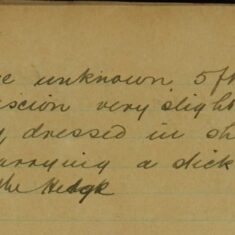 unknown 5ft
very slight
dressed in sh
arrying a dick
the Hedge